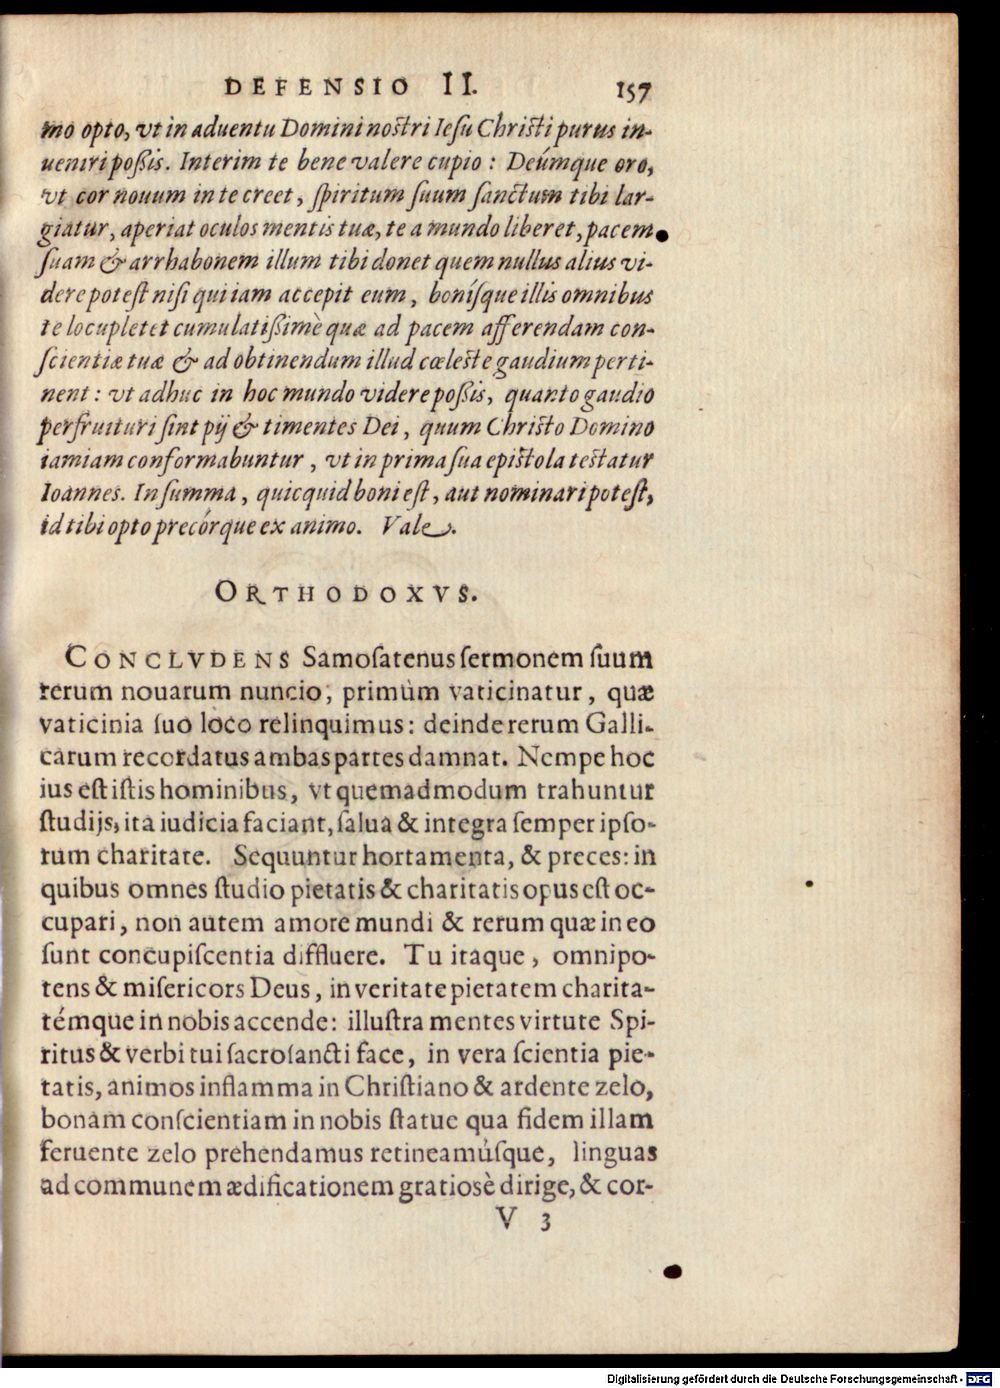 DEFENSIO II. 157
mo opto, vt in aduentu Domini nostri Iesu Christi purus in-
ueniri poßis. Interim te bene valere cupio: Deúmque oro,
vt cor nouum in te creet, spiritum suum sanctum tibi lar-
giatur, aperiat oculos mentis tuæ, te a mundo liberet, pacem
suam & arrhabonem illum tibi donet quem nullus alius vi-
dere potest nisi qui iam accepit eum, bonísque illis omnibus
te locupletet cumulatißimè quæ ad pacem afferendam con-
scientiæ tuæ & ad obtinendum illud cœleste gaudium perti-
nent: vt adhuc in hoc mundo videre poßis, quanto gaudio
perfruituri sint pij & timentes Dei, quum Christo Domino
iamiam conformabuntur, vt in prima sua epistola testatur
Ioannes. In summa, quicquid boni est, aut nominari potest,
id tibi opto precórque ex animo. Vale.
ORTHODOXVS.
CONCLVDENS Samosatenus sermonem suum
rerum nouarum nuncio, primùm vaticinatur, quæ
vaticinia suo loco relinquimus: deinde rerum Galli-
carum recordatus ambas partes damnat. Nempe hoc
ius est istis hominibus, vt quemadmodum trahuntur
studijs, ita iudicia faciant, salua & integra semper ipso-
rum charitate. Sequuntur hortamenta, & preces: in
quibus omnes studio pietatis & charitatis opus est oc-
cupari, non autem amore mundi & rerum quæ in eo
sunt concupiscentia diffluere. Tu itaque, omnipo-
tens & misericors Deus, in veritate pietatem charita-
témque in nobis accende: illustra mentes virtute Spi-
ritus & verbi tui sacrosancti face, in vera scientia pie-
tatis, animos inflamma in Christiano & ardente zelo,
bonam conscientiam in nobis statue qua fidem illam
feruente zelo prehendamus retineamúsque, linguas
ad communem ædificationem gratiosè dirige, & cor-
V 3
Digitalisierung gefördert durch die Deutsche Forschungsgemeinschaft - DFG